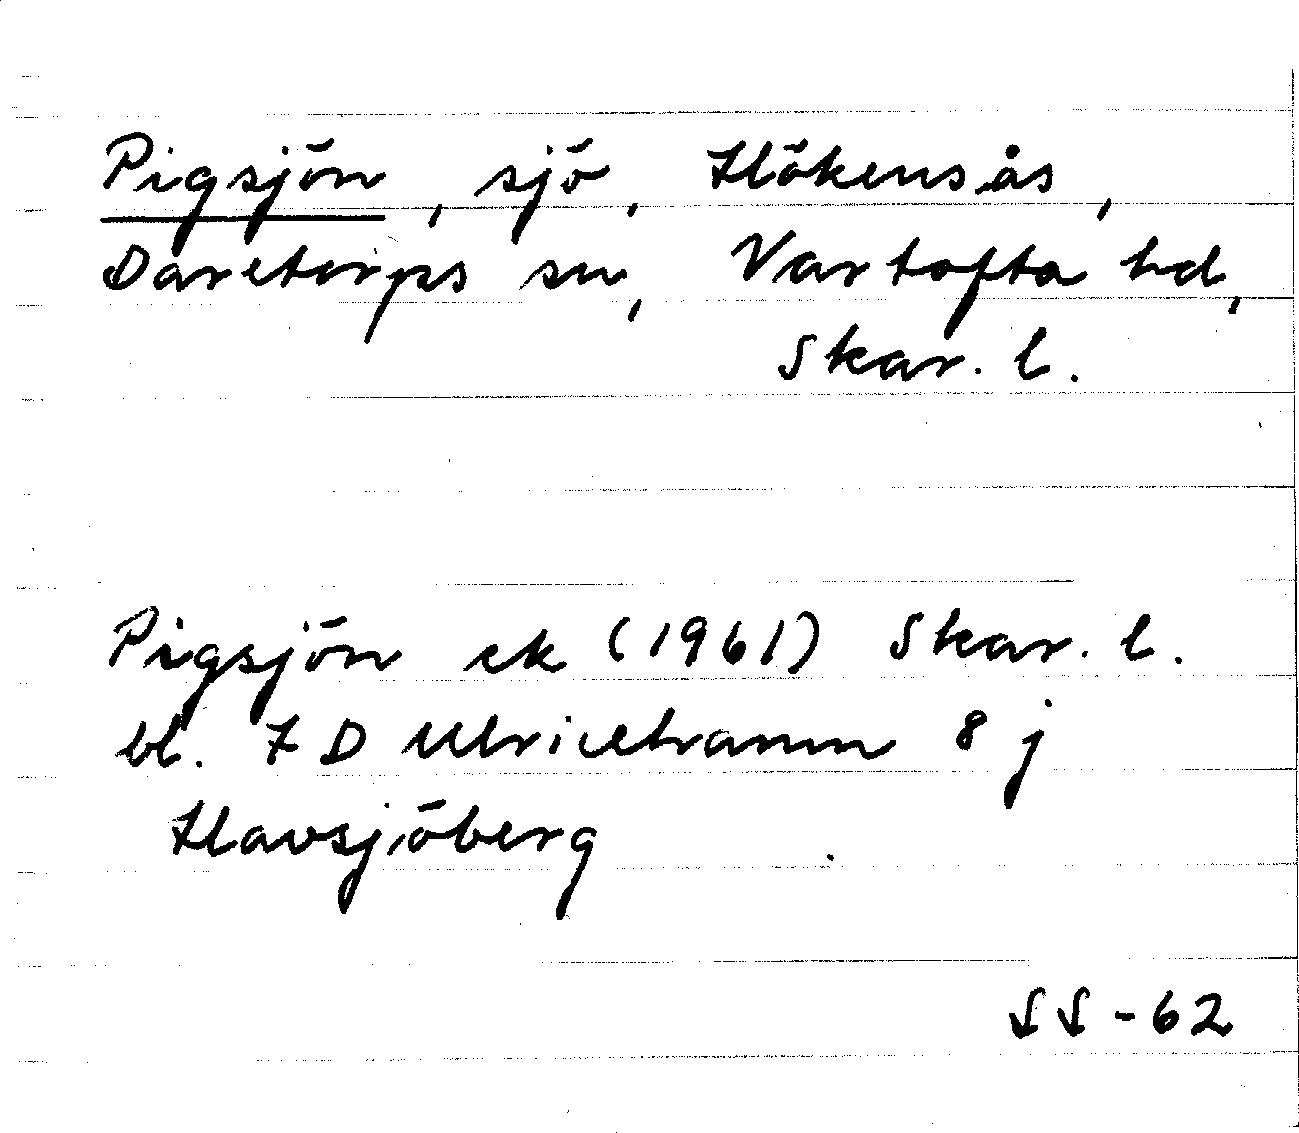 Pigsjön, sjö, Hökensås,
Daretorps sn, Vartofta hd,
Skar. l.
Pigsjön ek (1961) Skar. l.
bl. 7 D Ulricehamn 8 j
Havsjöberg
SS-62